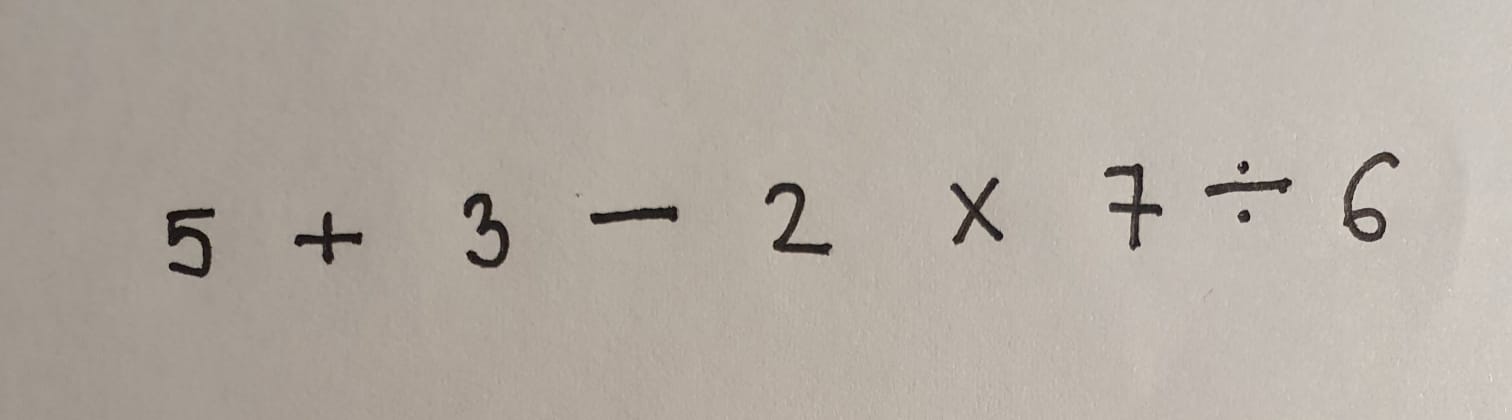 5 + 3 − 2 × 7 ÷ 6